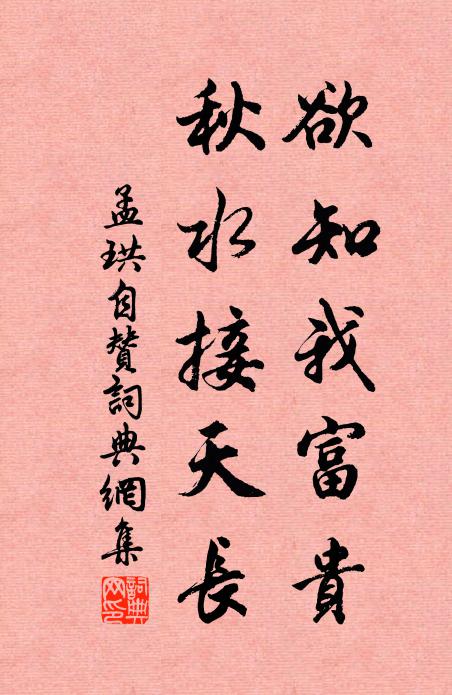 欲知我富貴
秋水接天長
孟珙自贊詞典網集
詞典網印